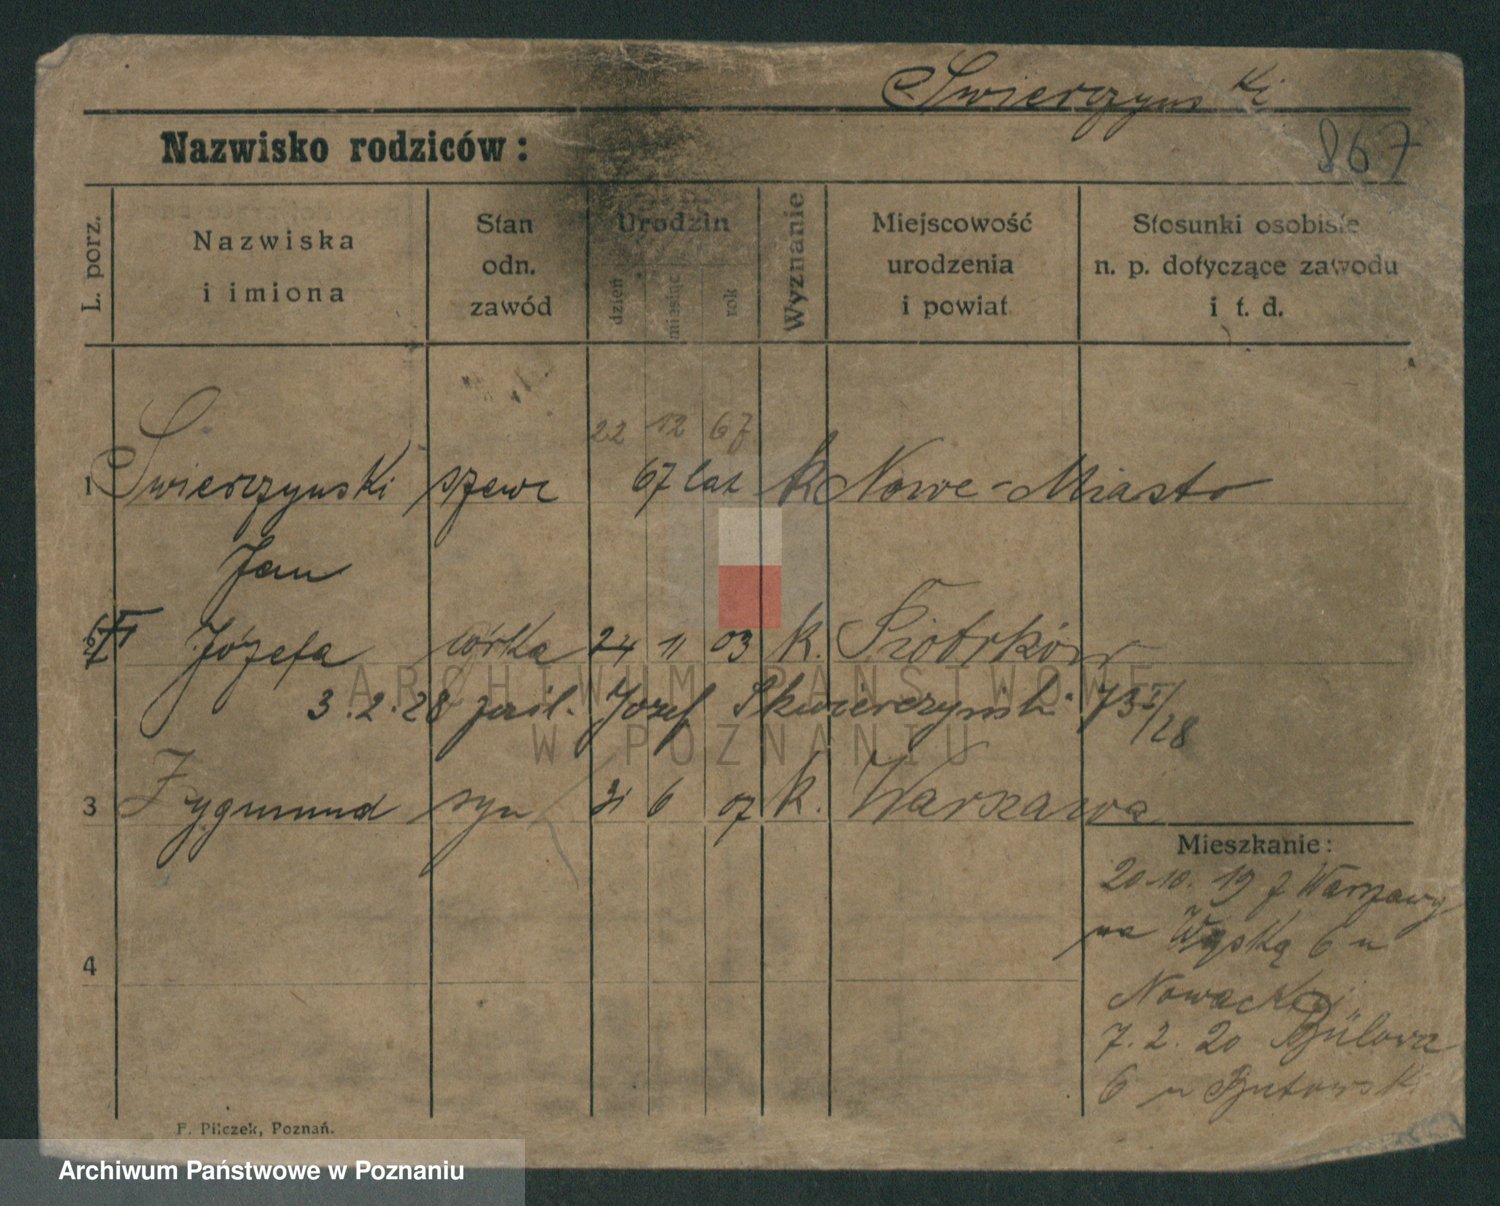 Swierczynski
Nazwisko rodziców:
867
L. porz.
Nazwiska
i imiona
Stan
odn.
zawód
Urodzin
dzień
miesiąc
rok
Wyznanie
Miejscowość
urodzenia
i powiat
Stosunki osobiste
n. p. dotyczące zawodu
i t. d.
22 12 67
1 Swierczynski szewc 67 lat k Nowe-Miasto
Jan
2 Józefa córka 24 11 03 k. Piotrków
3.2.28 Józef Skwierczyński 73 I/28
3 Zygmund syn 31 6 07 k. Warszawa
Mieszkanie:
20.10.19 z Warszawy
na Wąską 6 u
Nowackiej
7.2.20 Bülowa
6 u Butowski
4
F. Pilczek, Poznań.
ARCHIWUM PAŃSTWOWE
W POZNANIU
Archiwum Państwowe w Poznaniu